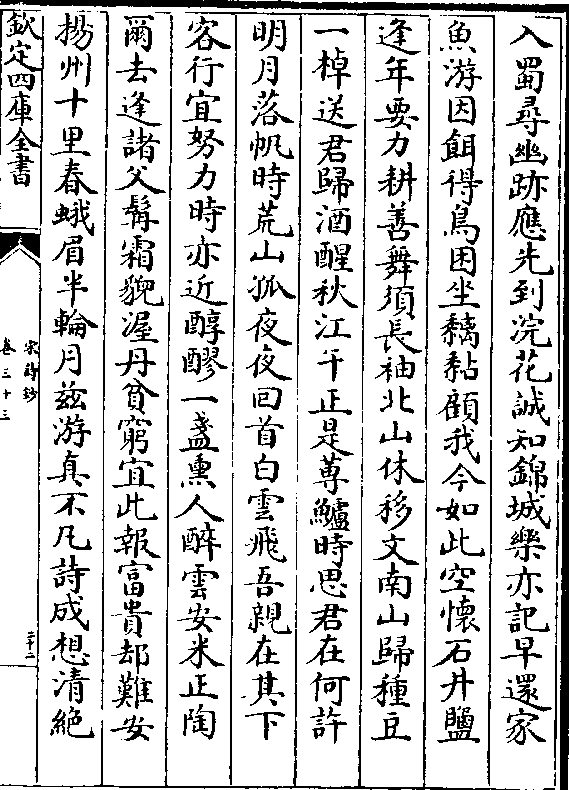 入蜀尋幽跡應先到浣花誠知錦城樂亦記早還家
魚游因餌得鳥困坐黐黏顧我今如此空懷石井鹽
逢年要力耕善舞須長袖北山休移文南山歸種豆
一棹送君歸酒醒秋江干正是蓴鱸時思君在何許
明月落帆時荒山孤夜夜回首白雲飛吾親在其下
客行宜努力時亦近醇醪一盞熏人醉雲安米正陶
爾去逢諸父髯霜貌渥丹貧窮宜此報富貴却難安
揚州十里春蛾眉半輪月兹游真不凡詩成想清絶
欽定四庫全書
宋詩鈔
卷三十三
二十二